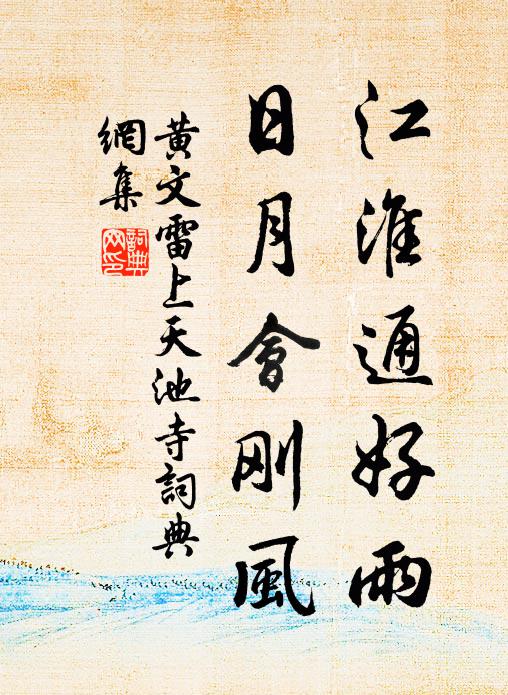 江淮通好雨
日月會刚風
黃文雷上天池寺詞典
網集
詞典網印